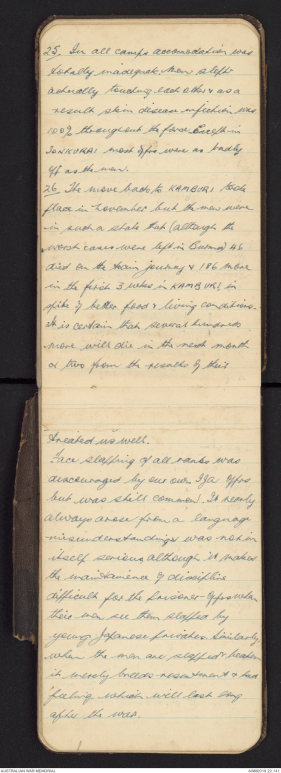 25. In all camps accomodation was
totally inadequate, Men slept
actually touching each other & as a
result skin disease infection was
100% throughout the force. Except in
SONKURAI most Offrs were as badly
off as the men.
26. The move back to KAMBURI took
place in November but the men were
in such a state that (although the
worst cases were left in Burma) 46
died on the train journey & 186 more
in the first 3 weeks in KAMBURI in
spite of better food & living conditions.
It is certain that several hundreds
more will die in the next month
or two from the results of their
treated us well.
Face slapping of all ranks was
discouraged by our own IJA Offrs
but was still common. It nearly
always arose from a language
misunderstanding & was not in
itself serious although it makes
the maintenance of discipline
difficult for the Prisoner-Offrs when
their men see them slapped by
young Japanese privates. Similarly
when the men are slapped & beaten
it merely breeds resentment & bad
feeling which will last long
after the war.
AUSTRALIAN WAR MEMORIAL